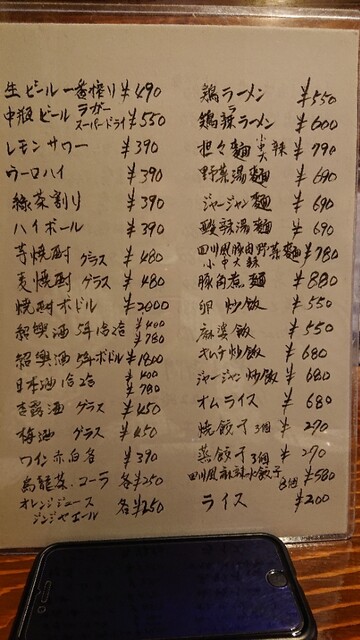 生ビール 一番搾り ¥490
中瓶ビール ラガー スーパードライ ¥550
レモンサワー ¥390
ウーロハイ ¥390
緑茶割り ¥390
ハイボール ¥390
芋焼酎 グラス ¥480
麦焼酎 グラス ¥480
焼酎ボトル ¥2000
紹興酒 5年 1合 2合 ¥400 ¥780
紹興酒 5年ボトル ¥1800
日本酒 1合 2合 ¥400 ¥780
酒 グラス ¥450
梅酒 グラス ¥450
ワイン 赤白各 ¥390
烏龍茶.コーラ 各¥250
オレンジジュース
ジンジャエール 各¥250
鶏ラーメン ¥550
鶏辣ラーメン ¥600
担々麺 小中大辣 ¥790
野菜湯麺 ¥690
ジャージャン麺 ¥690
酸辣湯麺 ¥690
四川風豚肉野菜麺 小中大辣 ¥780
豚角煮麺 ¥880
卵炒飯 ¥550
麻婆飯 ¥550
キムチ炒飯 ¥680
ジャージャン炒飯 ¥680
オムライス ¥680
焼餃子 3個 ¥270
蒸餃子 3個 ¥270
四川風麻辣水餃子 8個 ¥580
ライス ¥200